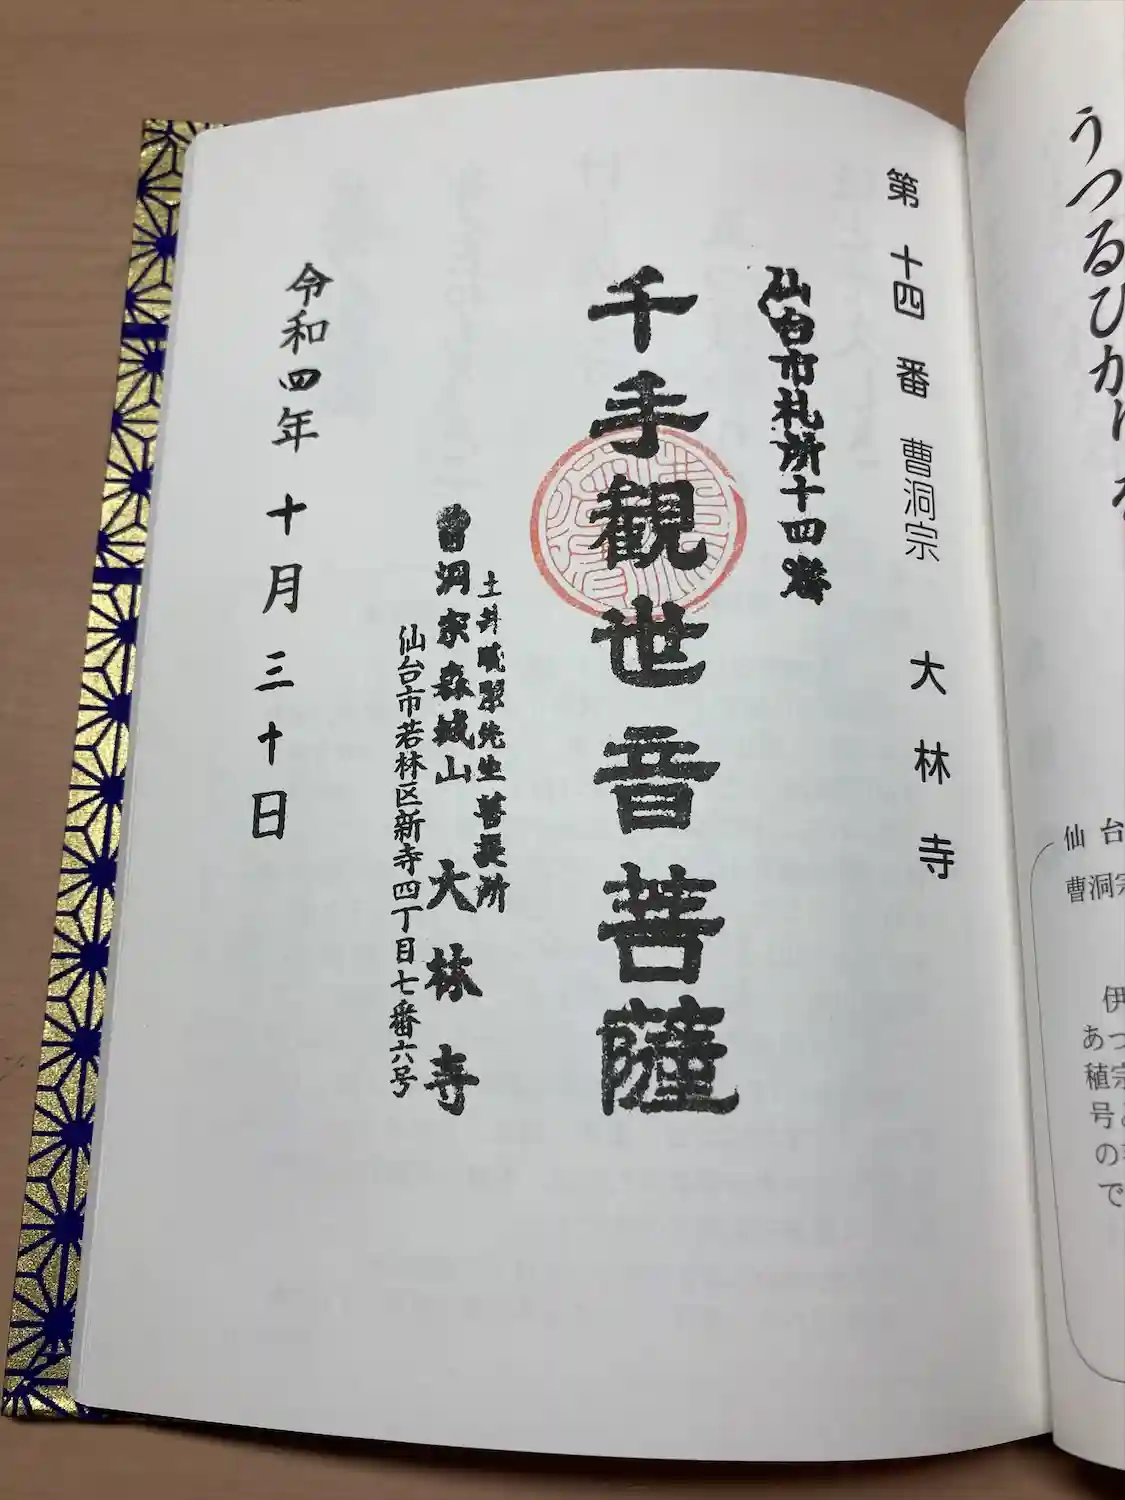 うつるひかり
仙台
曹洞宗
伊
あつ
稙宗
号
の
で
第十四番 曹洞宗 大林寺
仙台市札所十四番
千手観世音菩薩
土井晩翠先生菩提所
曹洞宗森城山 大林寺
仙台市若林区新寺四丁目七番六号
令和四年 十月三十日